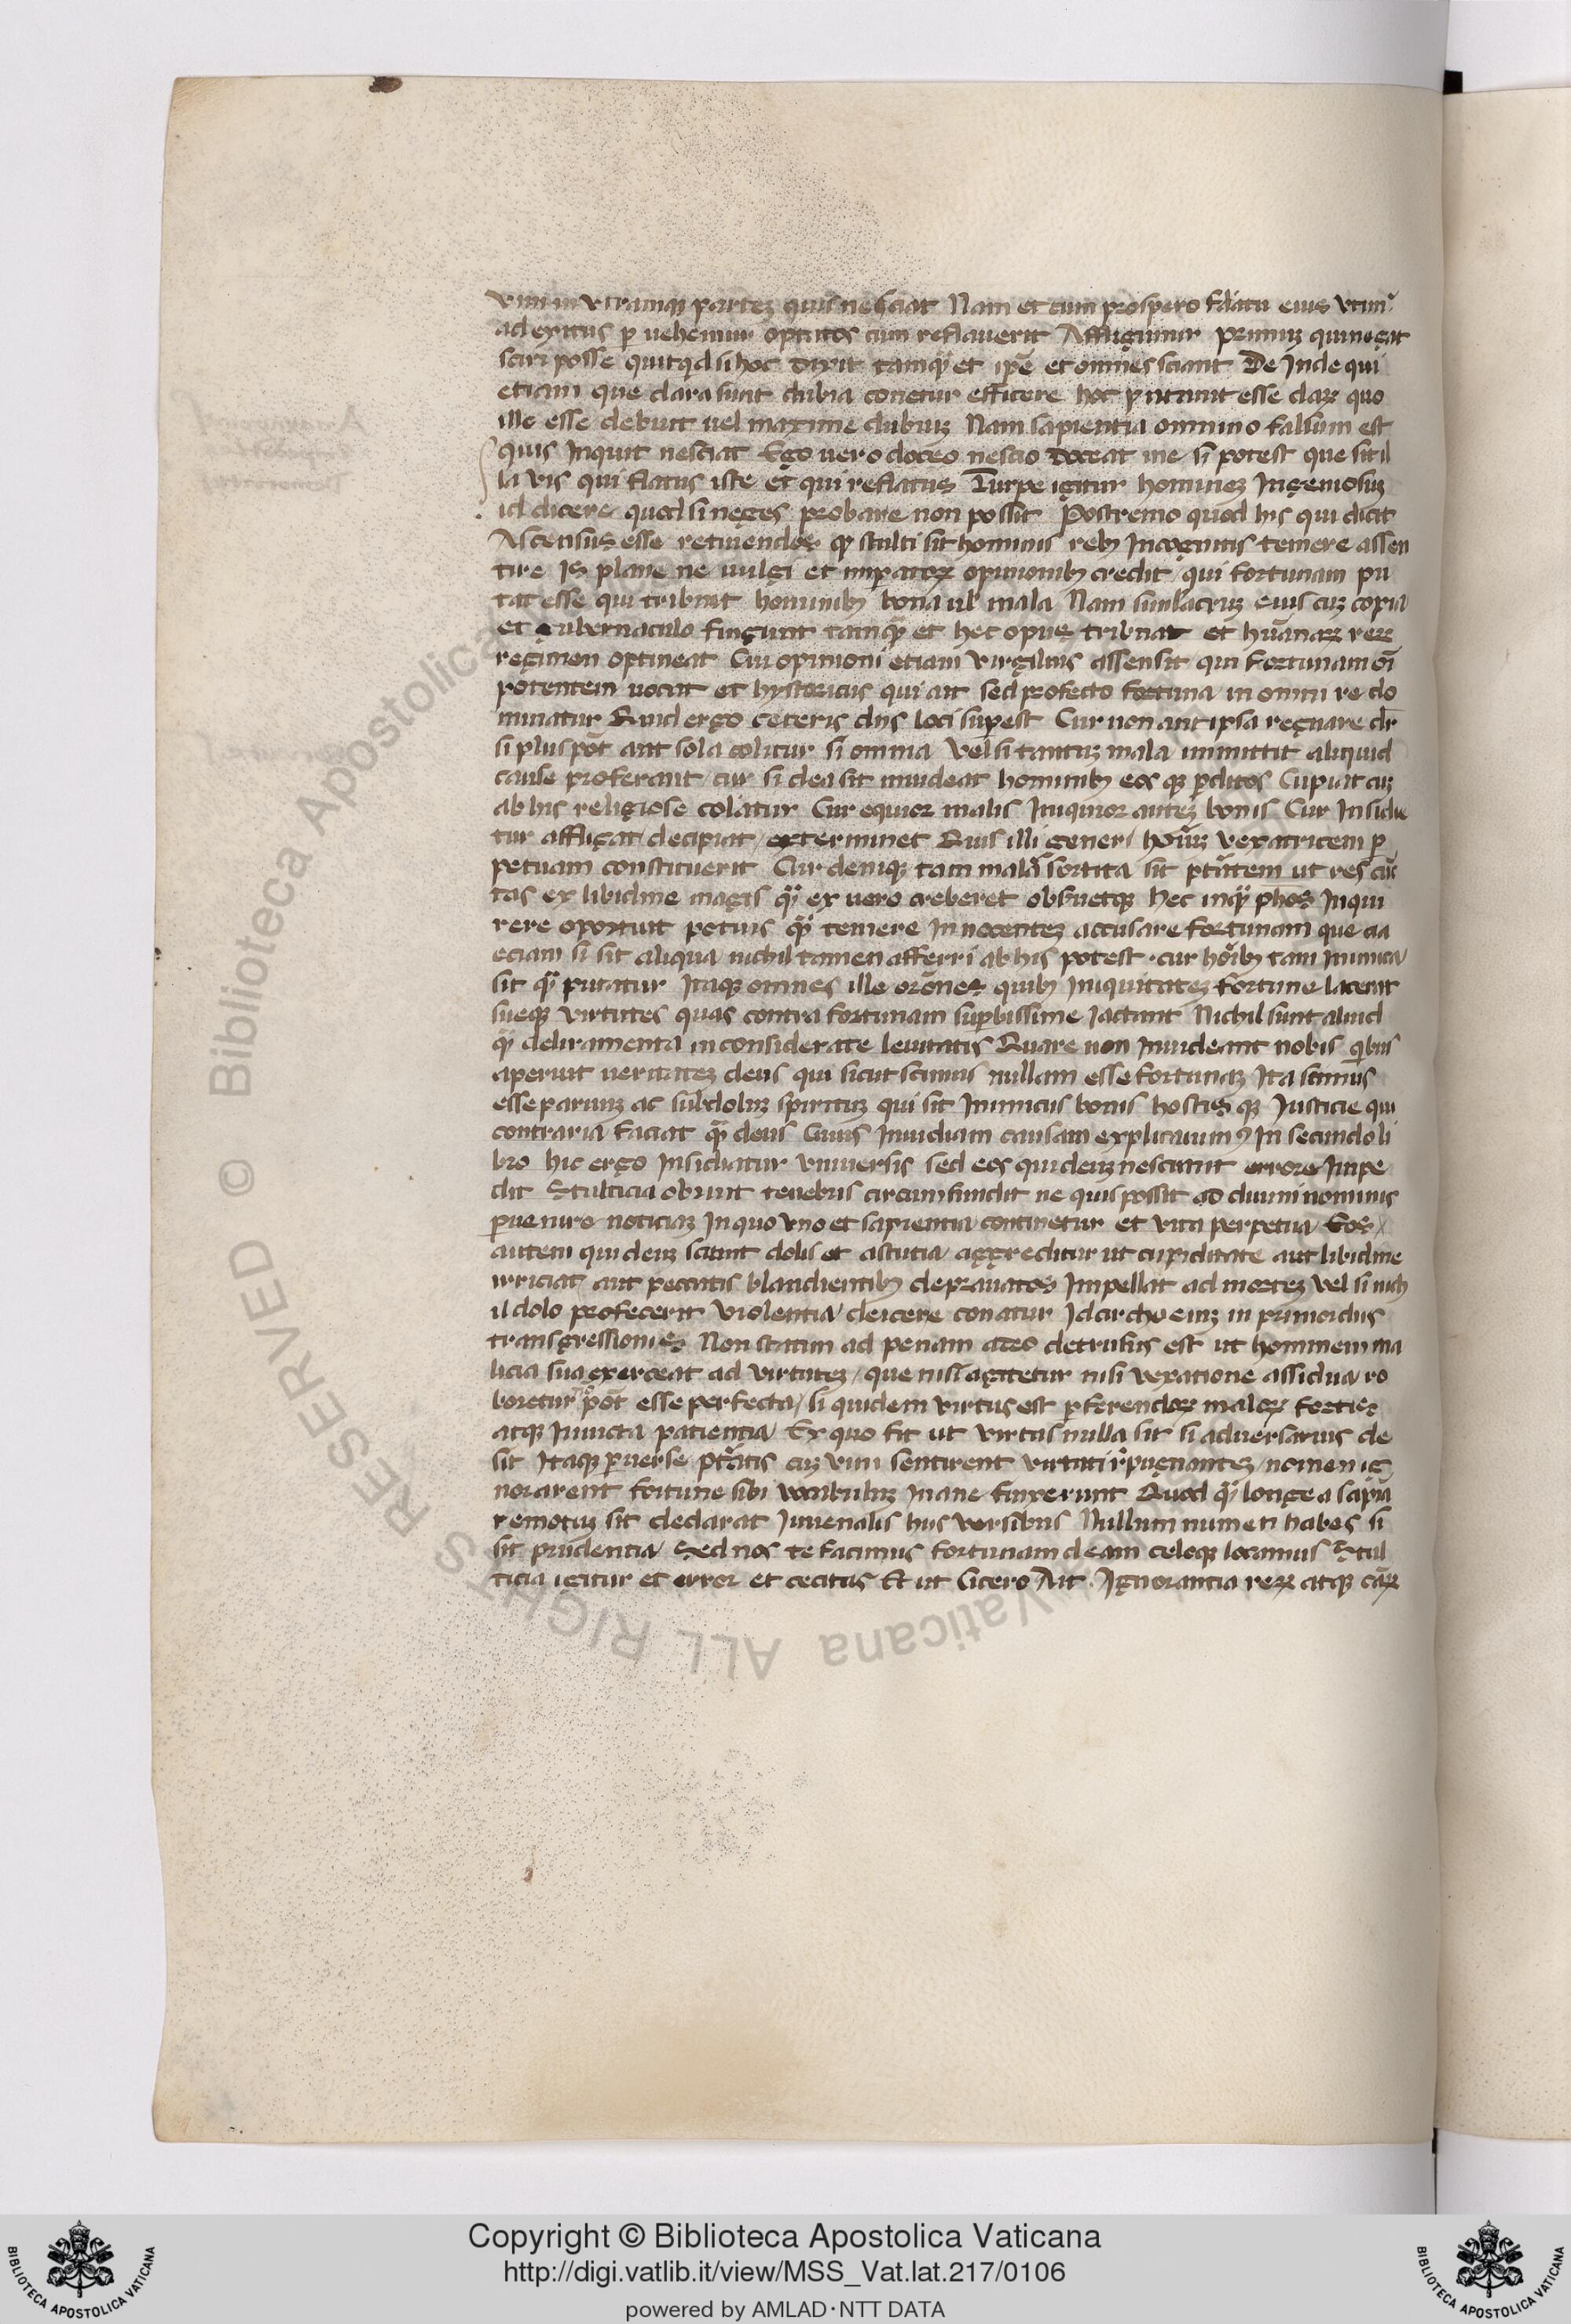 vim in vtramqꝫ parteꝫ quis nesciat Nam et cum prospero flatu eius vtimᷣ
ad exitus ꝑ vehemur optatos cum reflauerit Affligimur primuꝫ qui negat
sciri posse quitqd si hoc dixit tamqᷓ et ip̄e et omnes sciant De Inde qui
etiam que clara sunt dubia conetur efficere hoc putauit esse claꝝ quo
illo esse debuit uel maxime dubiuꝫ Nam sapientia omnino falsum est
quis Inquit nesciat Ego uero doceo nescio doceat me si potest que sit il
la vis qui flatus iste et qui reflatus Turpe igitur homineꝫ Ingeniosuꝫ
id dicere quod si neges probare non possit Postremo quod his qui dicit
Ascensus esse retinendos qꝫ stulti sit hominis rebꝫ Incognitis temere assen
tire Is plane ne uulgi et imꝑatoꝝ opinionibꝫ credit qui fortunam pu
tat esse qui tribuat hominibꝫ bona ul̕ mala Nam simlacruꝫ eius cuꝫ copia
et gubernaculo fingunt tamqᷓ et hec opus tribuat et hūanaꝝ reꝝ
regimen optineat Cui opinioni etiam virgilius assensit qui fortunam oī
potentem uocat et hystoricus qui ait sed profecto fortuna in omni re do
minatur Quid ergo ceteris diis loci suꝑest Cur non aut ipsa regnare dr̄
si plus pōt aut sola colitur si omnia Vel si tantuꝫ mala inmittit aliquid
cause proferant cur si dea sit inuideat hominibꝫ eos qꝫ ꝑditos Cupiat cuꝫ
ab his religiose colatur Cur equior malis Iniquior auteꝫ bonis Cur Insidie
tur affligat decipiat exterminet Quis illi generi hoīuꝫ vexatricem ꝑ
petuam constituerit Cur denique tam malā sortita sit ptātem ut res cūc
tas ex libidine magis qᷓ ex uero creberet obsuetqꝫ Hec inqᷓ phōs Inqui
rere oportuit potius qᷓ temere Innocenteꝫ accusare fortunam que cia
eciam si sit aliqua nichil tamen afferri ab his potest cur hoībꝫ tam Inimica
sit qᷓ putatur Itaqꝫ omnes ille orōnes quibꝫ Iniquitateꝫ fortune lacerāt
sueqꝫ virtutes quas contra fortunam suꝑbissime Iactant Nichil sunt aliud
qᷓ deliramenta inconsiderate leuitatis Quare non Inuideant nobis qibus
aperuit ueritateꝫ deus qui sicut scimus nullam esse fortunaꝫ Ita scimus
esse paruuꝫ ac subdoluꝫ spirituꝫ qui sit Inimicus bonis hostisqꝫ Iusticie qui
contraria faciat qᷓ deus Cuius Inuidiam causam explicauimꝰ In secundo li
bro hic ergo Insidiatur vniuersis sed eos qui deuꝫ nesciunt errore Impe
dit Stulticia obruit tenebris circumfundit ne quis possit ad diuini nominis
ꝑuenire noticiaꝫ In quo vno et sapientia continetur et vita perpetua Eos
autem qui deuꝫ sciunt dolis et astutia aggreditur ut cupiditate aut libidine
irriciat aut peccatis blandientibꝫ deprauatos Impellat ad morteꝫ vel si nich
il dolo profecerit violentia deicere conatur Idcircho eniꝫ in primordiis
transgressionis Non statim ad penam a deo detrusus est ut hominem ma
licia sua exerceat ad virtuteꝫ que nisi agitetur nisi vexatione assidua ro
boretur pōt esse perfecta si quidem virtus est ꝑferendoꝝ maloꝝ fortis
atqꝫ Inuicta patientia Ex quo fit ut virtus nulla sit si aduersarius de
sit Itaqꝫ ꝑuerse ptātis cuꝫ vim sentirent virtuti rᷣpugnanteꝫ nomen ig
norarent fortune sibi vocabuluꝫ Inane finxerunt Quod qᷓ longe a sapīa
remotuꝫ sit declarat Iuuenalis hijs versibus Nullum numen habes si
sit prudentia Sed nos te facimus fortunam deam celoqꝫ locamus Stul
ticia igitur et error et cecitas Et ut Cicero Ait Ignorantia reꝝ atqꝫ cāꝝ
Copyright © Biblioteca Apostolica Vaticana
http://digi.vatlib.it/view/MSS_Vat.lat.217/0106
powered by AMLAD·NTT DATA
BIBLIOTECA APOSTOLICA VATICANA
BIBLIOTECA APOSTOLICA VATICANA
© Biblioteca Apostolica Vaticana ALL RIGHTS RESERVED